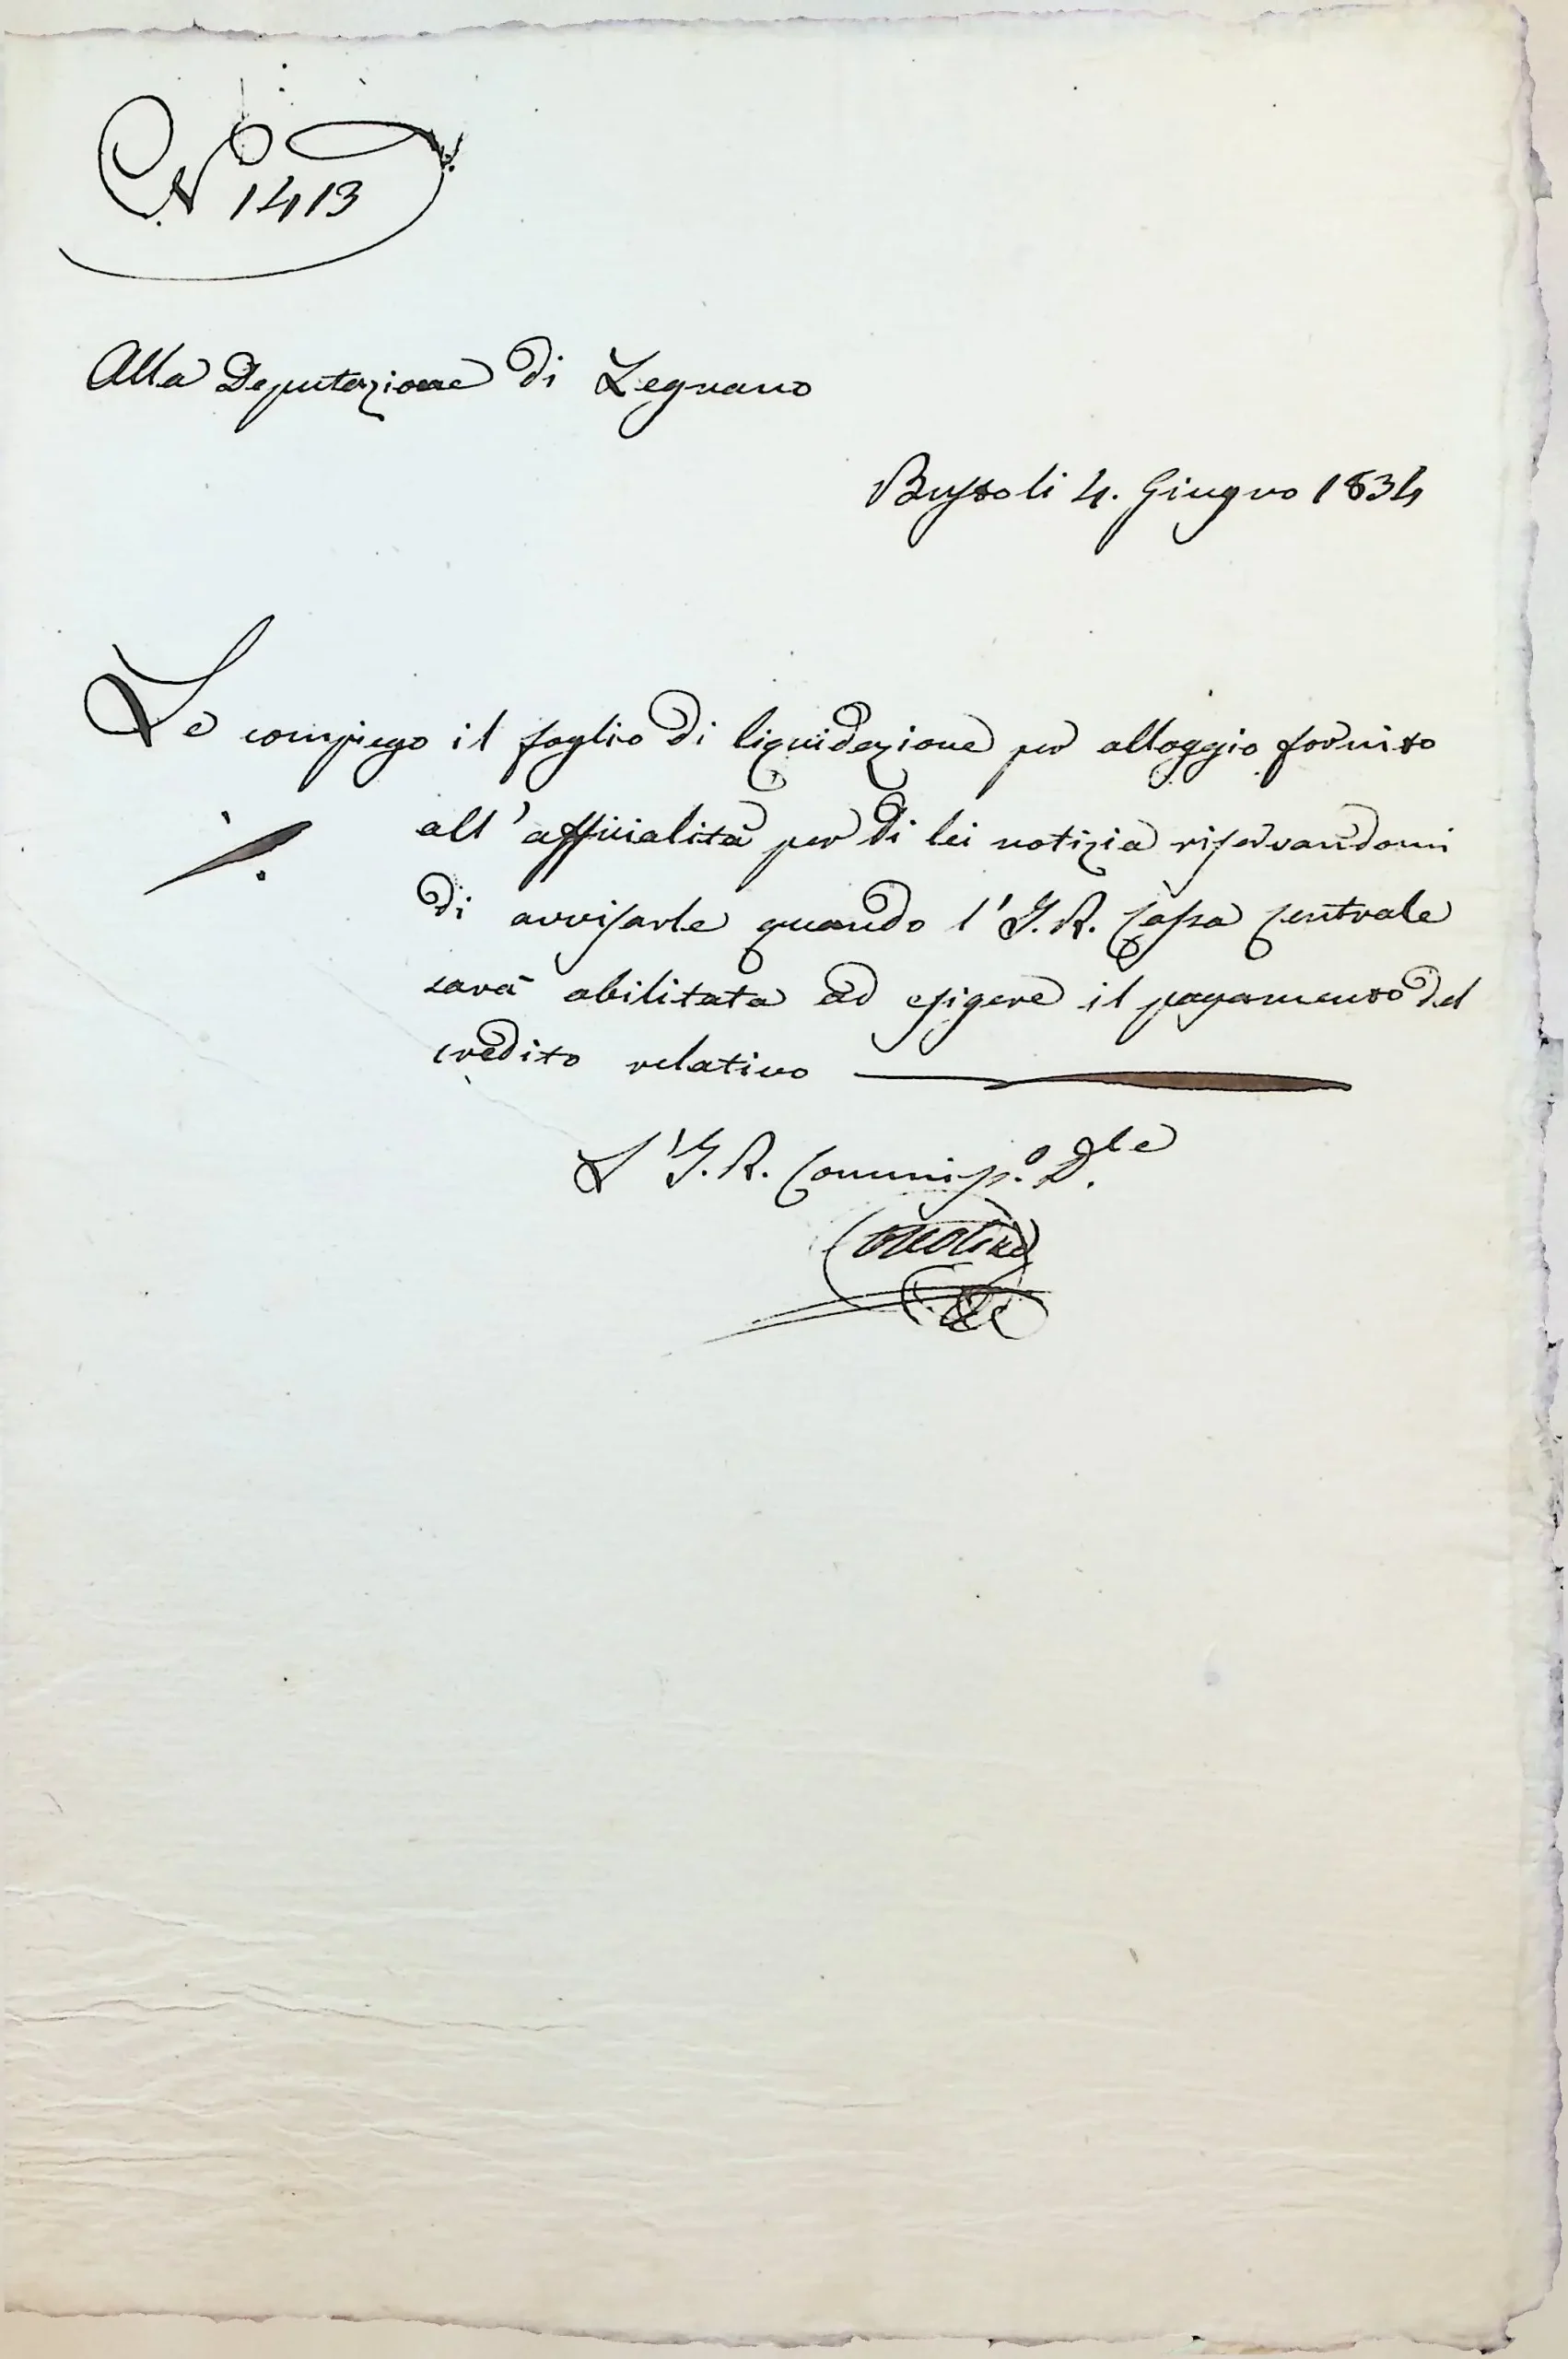 N° 1413
Alla Deputazione di Legnano
Busto li 4. Giugno 1834
Le compiego il foglio di liquidazione per alloggio fornito
all'afficialità per di lei notizia riservandomi
di avvisarle quando l'I. R. Cassa Centrale
sarà abilitata ad esigere il pagamento del
credito relativo
L'I. R. Commiss.° D.le